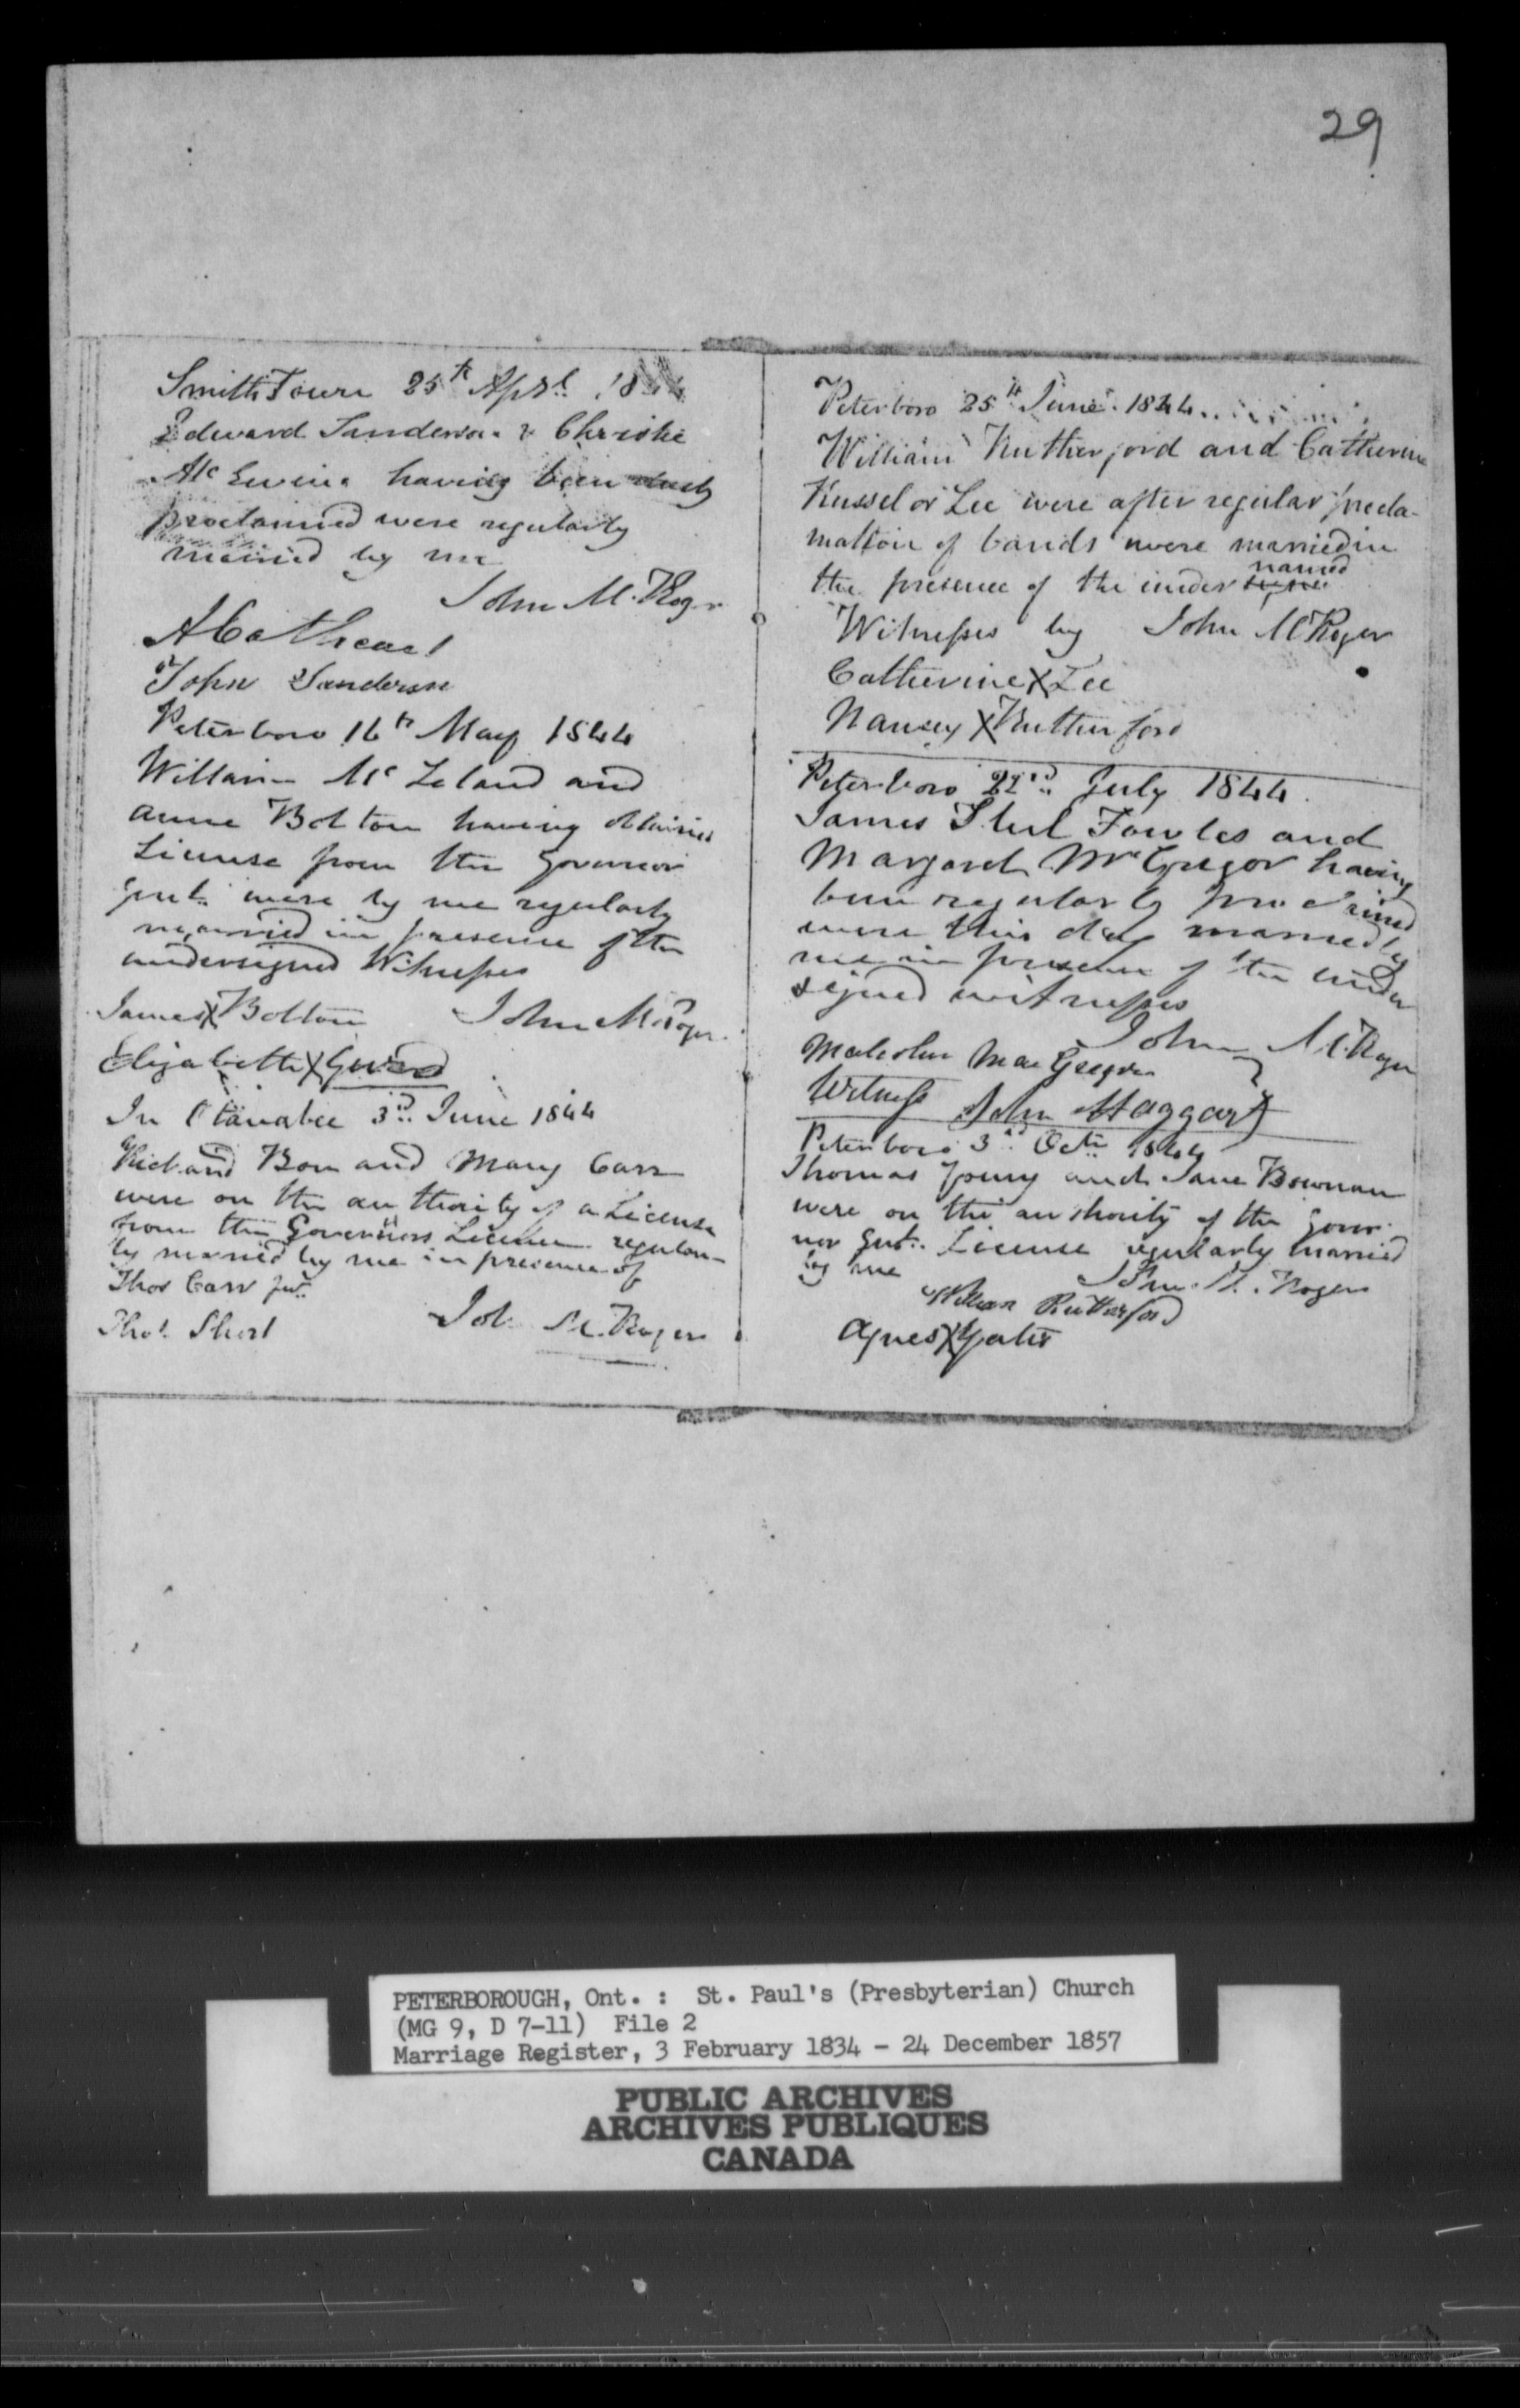 29
Smith Town 25th Aprl. 1844
Edward Sanderson & Christie
Mc having been duly
proclaimed were regularly
married by me
John M. Roger
A Cathcart
John Sanderson
Peterboro 16th May 1844
William Mc Leland and
Anne Bolton having obtained
License from the Governor
Genl. were by me regularly
married in presence of the
undersigned Witnesses
James X Bolton John M. Roger
Elizabeth X
In Otanabee 3rd. June 1844
Richard Bon and Mary Carr
were on the authority of a License
from the Governors License regular-
ly married by me in presence of
Thos Carr jur.
Thos. Short John M. Roger
Peterboro 25th June 1844
William Rutherford and Catherine
Russel or Lee were after regular procla-
mation of bands were married in
the presence of the under named
Witnesses by John M Roger
Catherine X Lee
Nansey X Rutherford
Peterboro 22nd. July 1844.
James Fowles and
Margaret McGregor having
been regularly proclaimed
were this day married by
me in presence of the under
signed witnesses
John M. Roger
Malcolm MacGregor
Witness John Haggart
Peterboro 3rd. Octr. 1844
Thomas Young and Jane Bowman
were on the authority of the Gover-
nor Genl. License regularly married
by me John M. Roger
William Rutherford
Agnes X Yates
PETERBOROUGH, Ont. : St. Paul's (Presbyterian) Church
(MG 9, D 7-11) File 2
Marriage Register, 3 February 1834 - 24 December 1857
PUBLIC ARCHIVES
ARCHIVES PUBLIQUES
CANADA